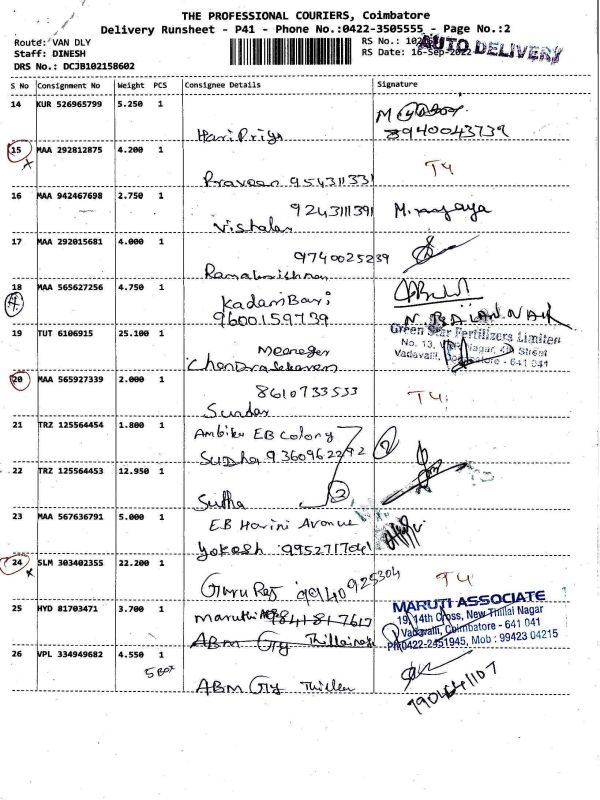 THE PROFESSIONAL COURIERS, Coimbatore
Delivery Runsheet - P41 - Phone No.:0422-3505555 - Page No.:2
Route: VAN DLY
RS No.:
AUTO DELIVERY
Staff: DINESH
RS Date: 16-Sep-2022
DRS No.: DCJB102158602
S No Consignment No Weight PCS Consignee Details Signature
14 KUR 526965799 5.250 1
HariPriya
8940043739
15 MAA 292812875 4.200 1
T4
Praveen 954311331
16 MAA 942467698 2.750 1
9243111391
Vishalax
17 MAA 292015681 4.000 1
9740025239
Ramakrishnan
18 MAA 565627256 4.750 1
KadamBari
9600159739
19 TUT 6106915 25.100 1
Green Star Fertilizers Limited
No. 13, Nagar, 4th Street
Vadavalli, Coimbatore - 641 041
Chandrasekaran
20 MAA 565927339 2.000 1
8610733533
T4
Sundar
21 TRZ 125564454 1.800 1
Ambika EB Colony
Sudha 9360962292
2
22 TRZ 125564453 12.950 1
Sudha
2
23 MAA 567636791 5.000 1
EB Harini Avenue
Yokesh
24 SLM 303402355 22.200 1
T4
Guru Raj 9940925304
25 HYD 81703471 3.700 1
Maruthi 9841817617
ABM Gry Thillainagar
MARUTI ASSOCIATE
19, 14th Cross, New Thillai Nagar
Vadavalli, Coimbatore - 641 041
Ph:0422-2451945, Mob : 99423 04215
26 VPL 334949682 4.550 1
5 BOX
ABM Gry Thillai